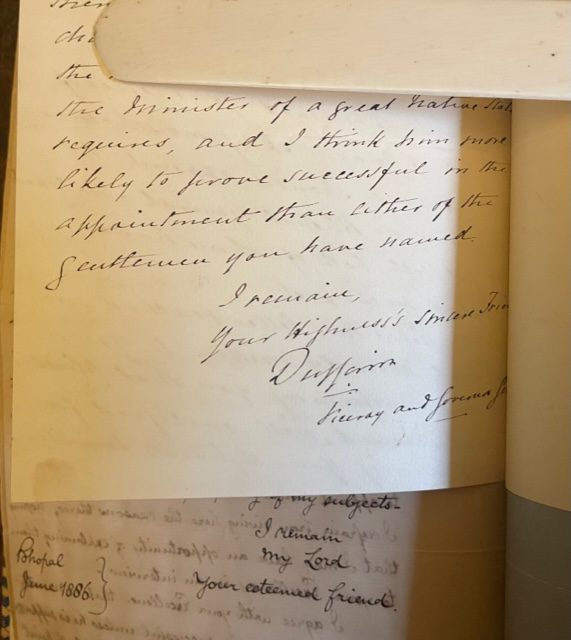 the
the Minister of a great Native Stat
requires, and I think him more
likely to prove successful in the
appointment than either of the
Gentlemen you have named.
I remain,
Your Highness's sincere Frien
Dufferin
Viceroy and Governor Ge
of my subjects.
I remain
My Lord
Your esteemed friend.
Bhopal
June 1886